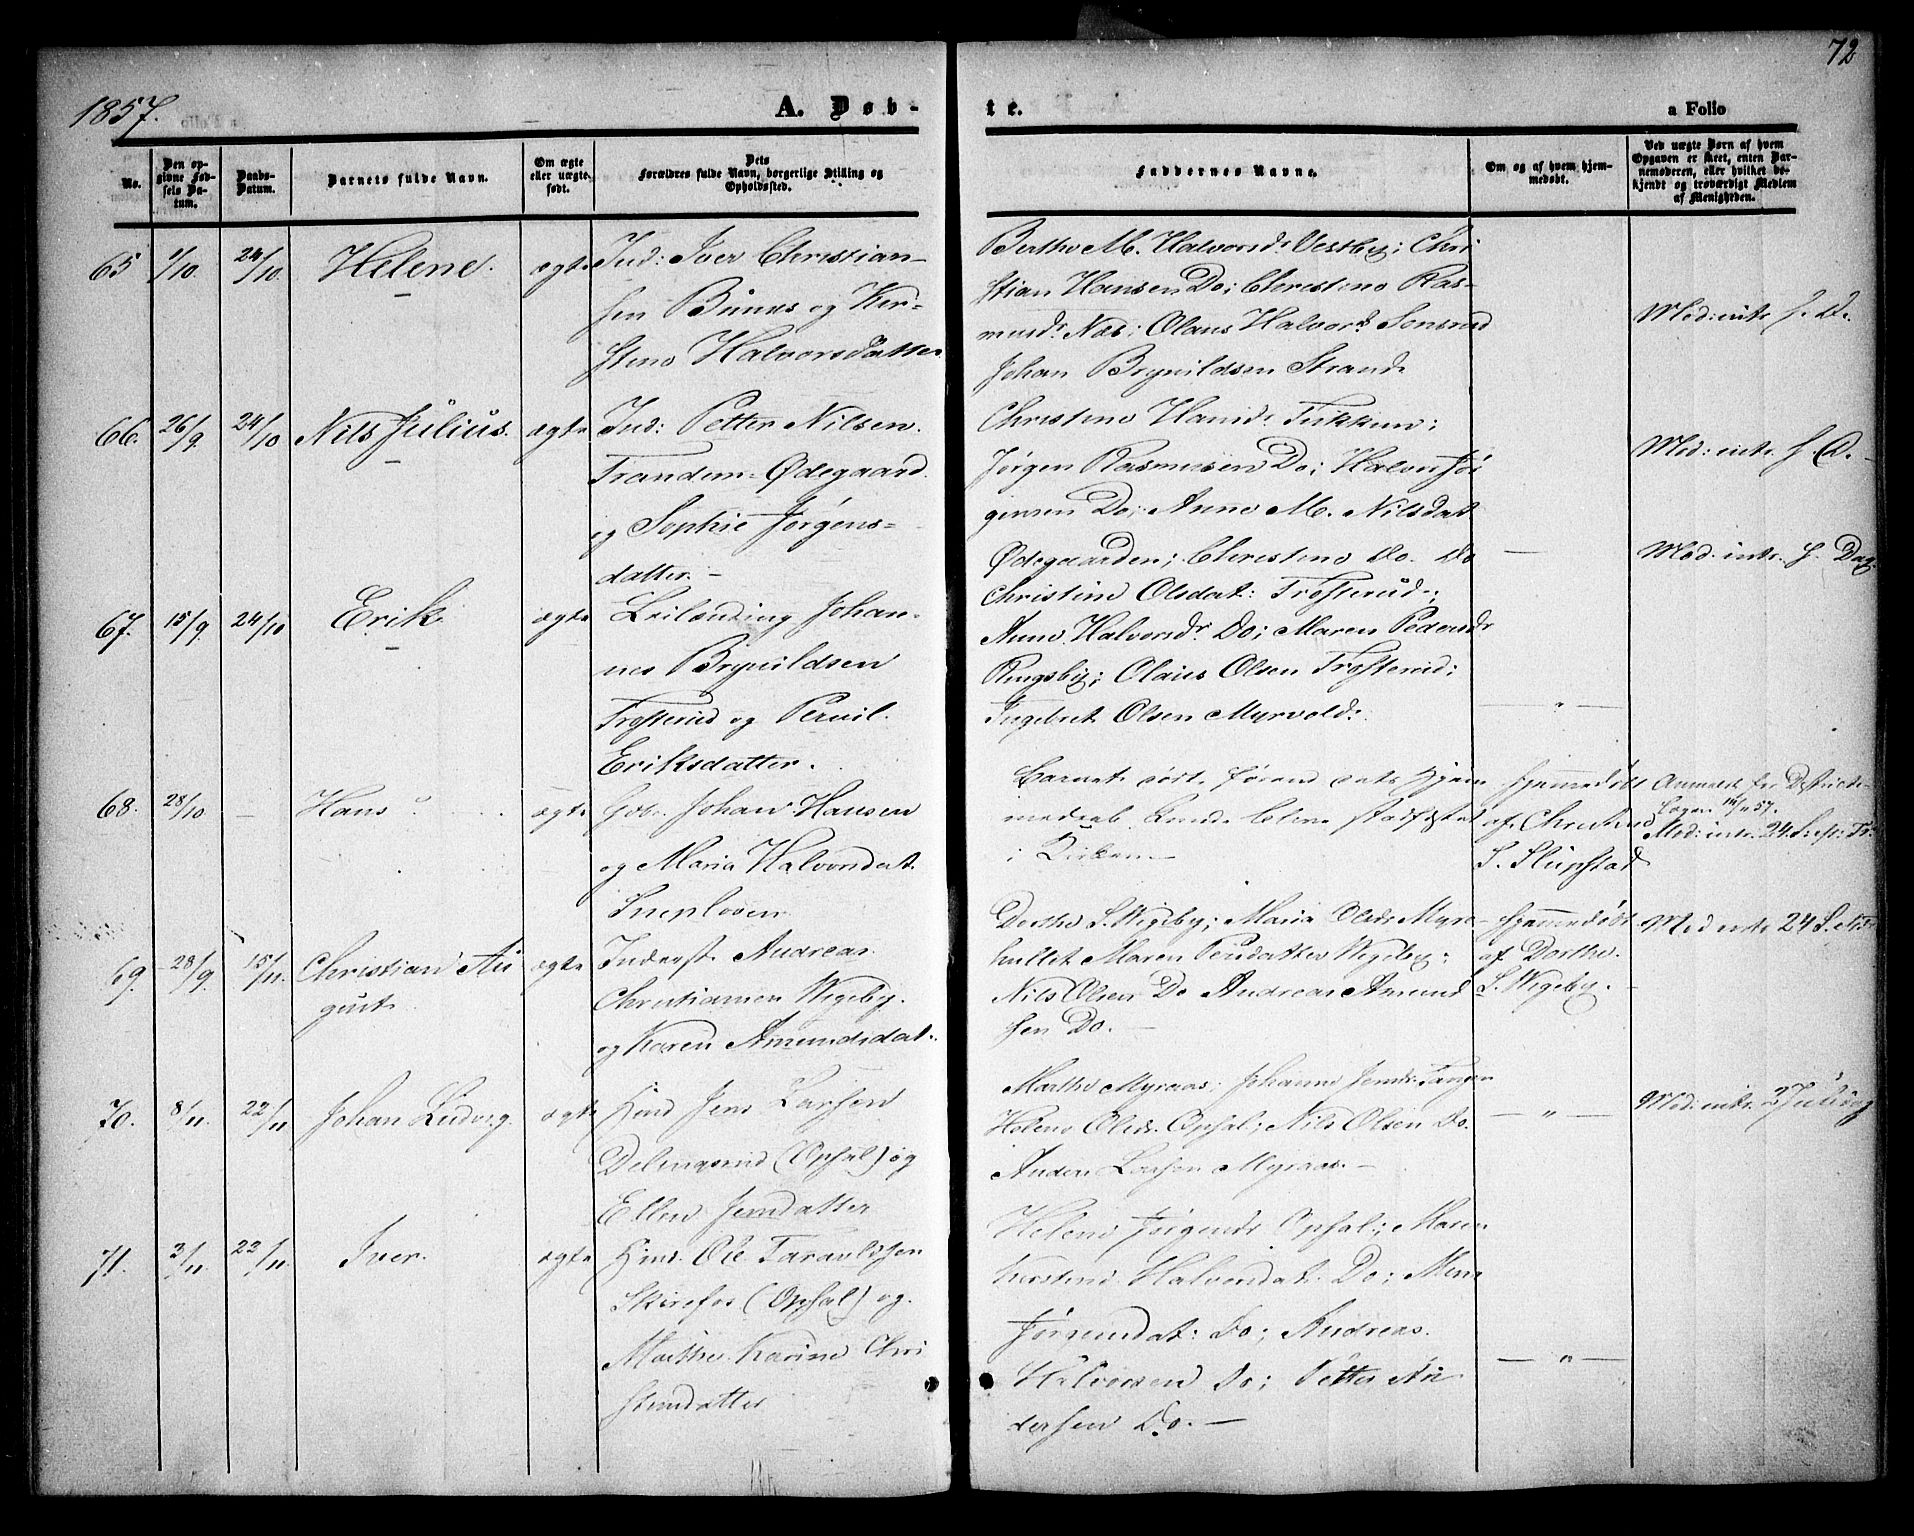 72
1857.
A. Døb-
te.
a Folio
No.
Den op-
givne Fød-
sels Da-
tum.
Daabs-
Datum.
Barnets fulde Navn.
Om ægte
eller uægte
født.
Dets
Forældres fulde Navn, borgerlige Stilling og
Opholdssted.
Faddernes Navne.
Om og af hvem hjem-
medøbt.
Ved uægte Børn af hvem
Opgaven er skeet, enten Bar-
nemoderen, eller hvilket be-
kjendt og troværdigt Medlem
af Menigheden.
65 1/10. 24/10. Helene. ægte Ind: Iver Christian-
sen Bunæs og Ker-
stine Halvorsdatter
Berthe M. Halvorsdr Vestby; Chri
stian Hansen Do; Christine Ras-
musdr Næs; Olaus Halvors Sonsrud
Johan Brynildsen Strand.
Mod: intr. s. D.
66. 26/9. 24/10 Nils Julius. ægte Ind: Petter Nilsen.
Trandem-Ødegaard
og Sophie Jørgens-
datter.-
Christine Hansd.
Jørgen Rasmusen Do; Halvor Jør
gensen Do; Anne M. Nilsdat
Ødegaarden; Christine Do. Do
Mod: intr. s. D.
67. 15/9. 24/10 Erik. ægte Leilænding Johan-
nes Brynildsen
Trosterud og Pernil.
Eriksdatter.
Christine Olsdat: Trosterud;
Anne Halvorsdr Do; Maren Pedersdr
Ringsby; Olaus Olsen Trosterud;
Ingebret Olsen Myrvold.
— " —
Mod. intr. s. Dag.
68. 28/10 — Hans ægte Gdb. Johan Hansen
og Maria Halvorsdat.
Barnet døde førend dets Hjem
medaab kunde blive stadfæstet
i Kirken.
Hjemmedøbt
af
S. Slupstad
Anmeldt for Districts-
Lægen 15/11 57.
Mod: intr. 24. S. e. Tr.
69. 28/9. 15/11. Christian Au
gust. ægte Inderst Andreas
Christiansen Wigeby.
og Karen Amundsdat.
Dorthe S. Wigeby; Maria Olsdr Myre
hullet Maren Wigeby;
Nils Olsen Do Andreas Amund
sen Do. —
Hjemmedøbt
af Dorthe
S. Wigeby.
Mod intr 24 S.
70. 8/11. 22/11 Johan Ludvig. ægte Hmd Jens Larsen
(Opsal) og
Ellen Jensdatter
Marthe Myraas; Johanne Jensdr Tangen
Helene Olsdr. Opsal; Nils Olsen Do.
Anders Larsen Myraas. —
— " —
Mod: intr.
71. 3/11. 22/11. Iver. ægte Hmd. Ole Taraldsen
Skirefos (Opsal) og
Marthe Karine Chri
stensdatter
Helene Jørgensdr Opsal; Maren
Kerstine Halvorsdat. Do;
Jørgensdat: Do; Andreas
Halvorsen Do; Petter An
dersen Do. —
— " —